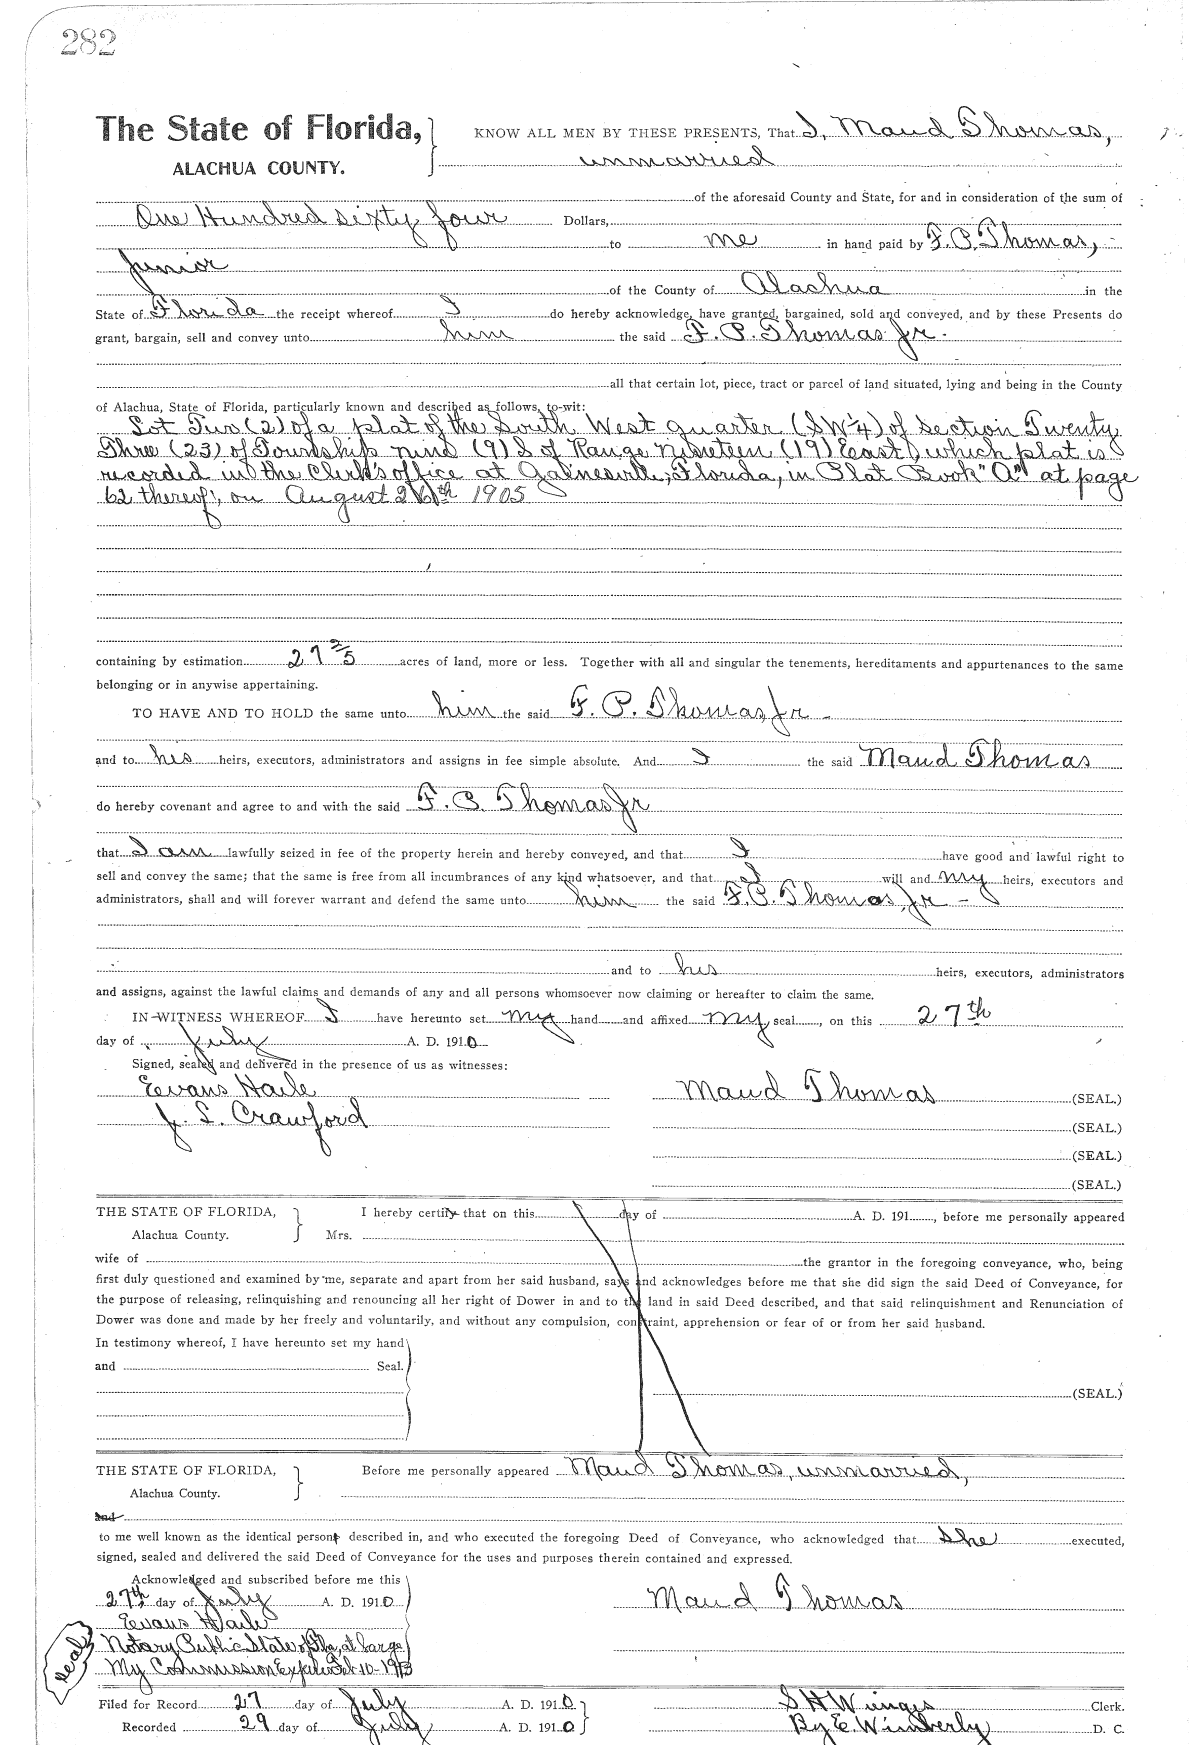 282
The State of Florida,
ALACHUA COUNTY.
KNOW ALL MEN BY THESE PRESENTS, That I, Maud Thomas,
unmarried
of the aforesaid County and State, for and in consideration of the sum of
One Hundred sixty four Dollars,
to me in hand paid by F. P. Thomas,
Junior
of the County of Alachua in the
State of Florida the receipt whereof I do hereby acknowledge, have granted, bargained, sold and conveyed, and by these Presents do
grant, bargain, sell and convey unto him the said F. P. Thomas Jr.
all that certain lot, piece, tract or parcel of land situated, lying and being in the County
of Alachua, State of Florida, particularly known and described as follows, to-wit:
Lot Two (2) of a plat of the South West quarter (SW¼) of Section Twenty
Three (23) of Township nine (9) S of Range Nineteen (19) East, which plat is
recorded in the Clerk's office at Gainesville, Florida, in Plat Book "A" at page
62 thereof, on August 26th 1905
containing by estimation 27 2/5 acres of land, more or less. Together with all and singular the tenements, hereditaments and appurtenances to the same
belonging or in anywise appertaining.
TO HAVE AND TO HOLD the same unto him the said F. P. Thomas, Jr
and to his heirs, executors, administrators and assigns in fee simple absolute. And I the said Maud Thomas
do hereby covenant and agree to and with the said F. P. Thomas Jr
that I am lawfully seized in fee of the property herein and hereby conveyed, and that I have good and lawful right to
sell and convey the same; that the same is free from all incumbrances of any kind whatsoever, and that I will and my heirs, executors and
administrators, shall and will forever warrant and defend the same unto him the said F. P. Thomas, Jr
and to his heirs, executors, administrators
and assigns, against the lawful claims and demands of any and all persons whomsoever now claiming or hereafter to claim the same.
IN WITNESS WHEREOF I have hereunto set my hand and affixed my seal, on this 27th
day of July A. D. 1910
Signed, sealed and delivered in the presence of us as witnesses:
Evans Haile
Maud Thomas (SEAL.)
J. L. Crawford
(SEAL.)
(SEAL.)
(SEAL.)
THE STATE OF FLORIDA,
Alachua County.
I hereby certify that on this day of A. D. 191 , before me personally appeared
Mrs.
wife of the grantor in the foregoing conveyance, who, being
first duly questioned and examined by me, separate and apart from her said husband, says and acknowledges before me that she did sign the said Deed of Conveyance, for
the purpose of releasing, relinquishing and renouncing all her right of Dower in and to the land in said Deed described, and that said relinquishment and Renunciation of
Dower was done and made by her freely and voluntarily, and without any compulsion, constraint, apprehension or fear of or from her said husband.
In testimony whereof, I have hereunto set my hand
and Seal.
(SEAL.)
THE STATE OF FLORIDA,
Alachua County.
Before me personally appeared Maud Thomas, unmarried,
and
to me well known as the identical person described in, and who executed the foregoing Deed of Conveyance, who acknowledged that she executed,
signed, sealed and delivered the said Deed of Conveyance for the uses and purposes therein contained and expressed.
Acknowledged and subscribed before me this
27th day of July A. D. 1910
Maud Thomas
Evans Haile
Notary Public State of Fla, at Large
My Commission Expires Feb 10-1913
Seal
Filed for Record 27 day of July A. D. 1910
S H Wienges Clerk.
Recorded 29 day of July A. D. 1910
By E. Wimberly D. C.